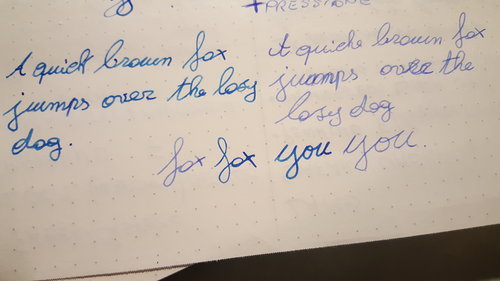 +PRESSIONE
A quick brown fox
jumps over the lazy
dog.
A quick brown fox
jumps over the
lazy dog
fox fox you you.